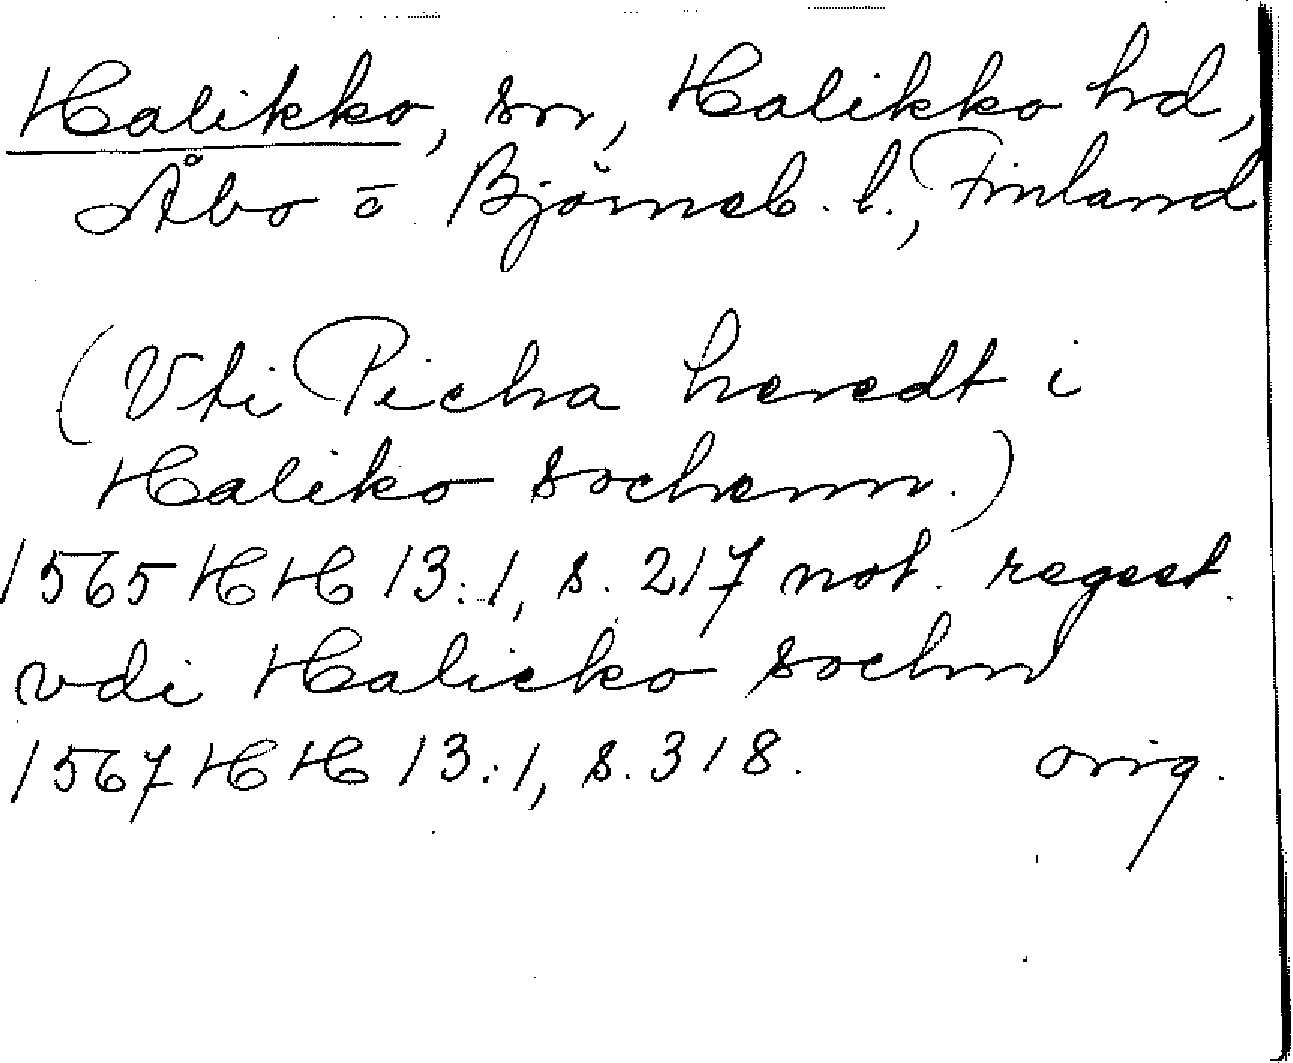 Halikko, sn, Halikko hd,
Åbo o. Björneb. l., Finland
(Vti Picha heredt i
Haliko sochenn.)
1565 HH 13:1, s. 217 not. regest.
vdi Halicko sochnn
1567 HH 13:1, s. 318. orig.